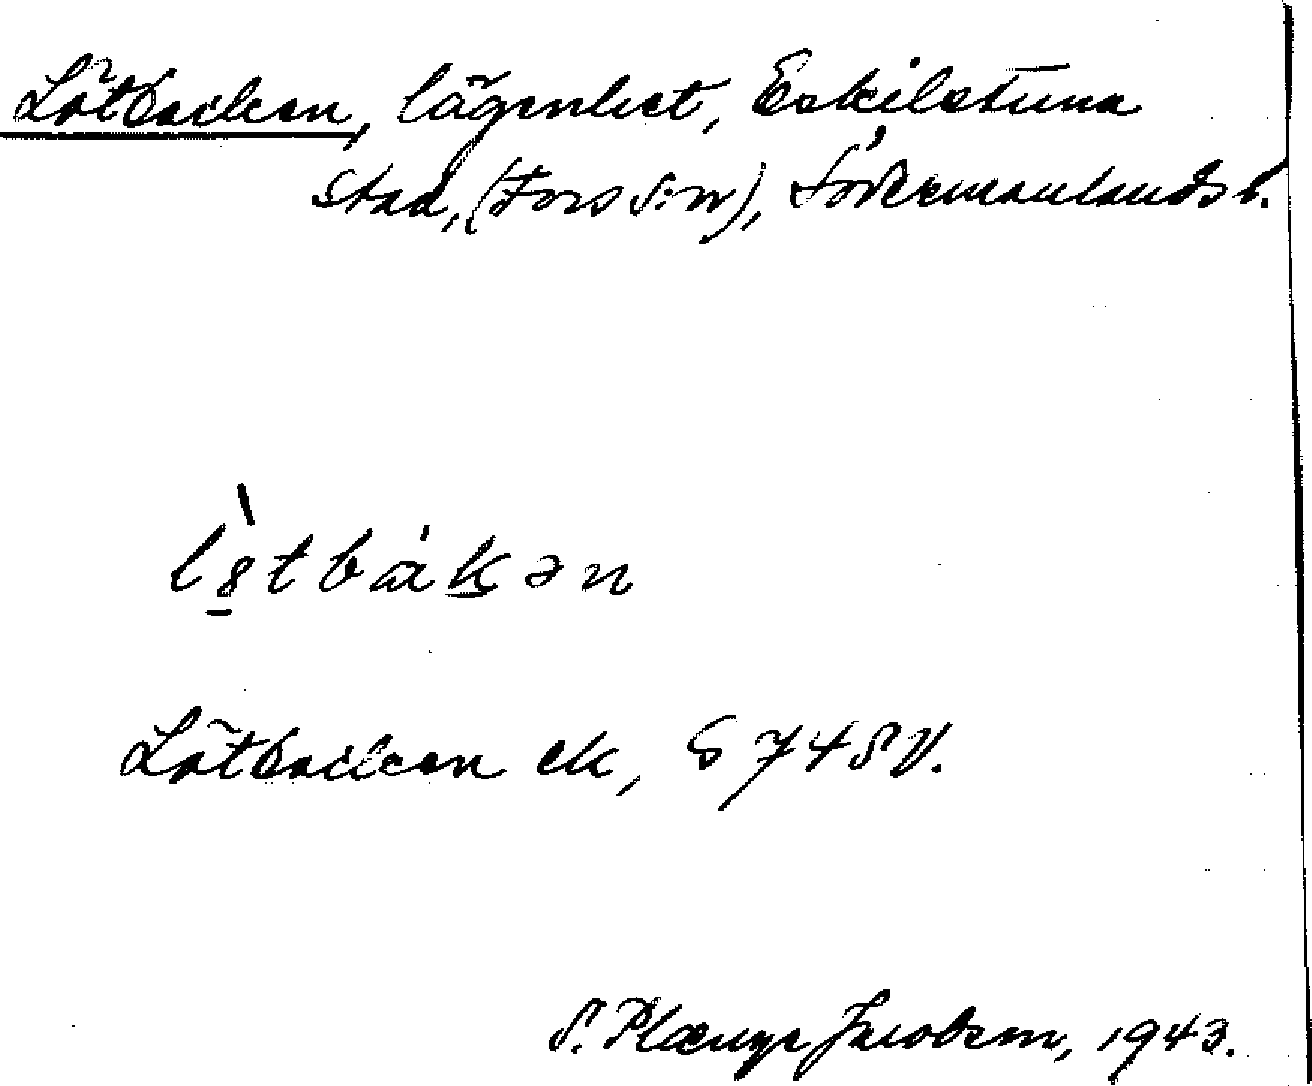 Lötbacken, lägenhet, Eskilstuna
stad, (Fors s:n), Södermanlands l.
lø̀tbákən
Lötbacken ek, S 74 SV.
S. Jacobsen, 1943.